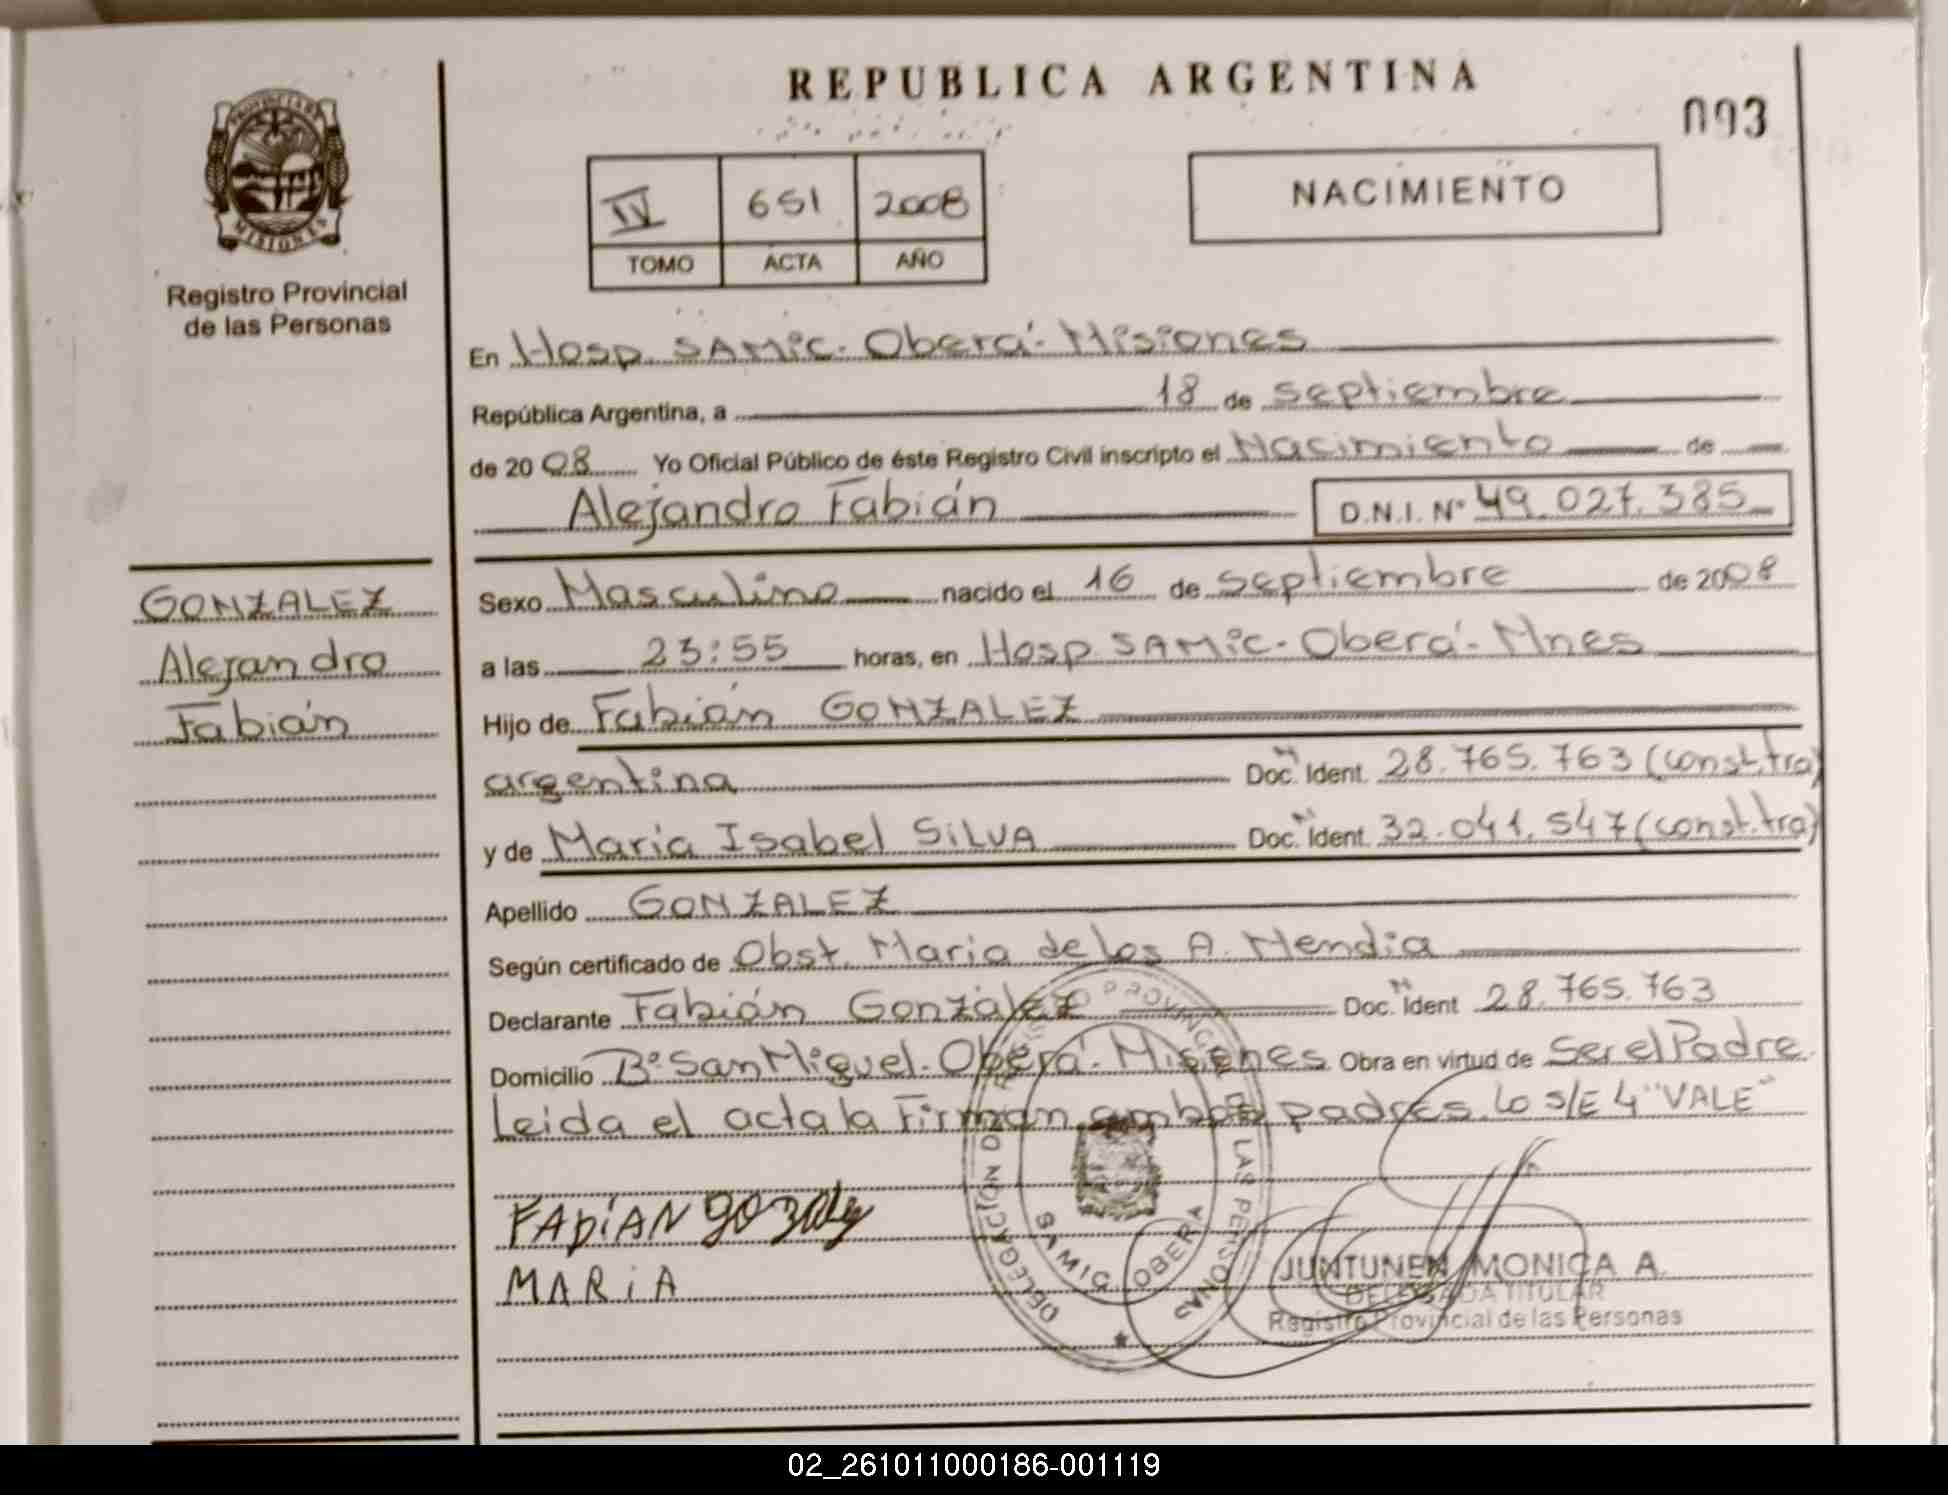 REPUBLICA ARGENTINA
093
PROVINCIA DE MISIONES
Registro Provincial
de las Personas
IV 651 2008
TOMO ACTA AÑO
NACIMIENTO
En Hosp. SAMic. Oberá. Misiones
República Argentina, a 18 de septiembre
de 2008 Yo Oficial Público de éste Registro Civil inscripto el Nacimiento de
Alejandro Fabián D.N.I. Nº 49.027.385
GONZALEZ
Alejandro
Fabián
Sexo Masculino nacido el 16 de septiembre de 2008
a las 23:55 horas, en Hosp. SAMic. Oberá. Mnes
Hijo de Fabián GONZALEZ
argentina Doc. Ident. 28.765.763 (const.tra)
y de María Isabel SILVA Doc. Ident. 32.041.547 (const.tra)
Apellido GONZALEZ
Según certificado de Obst. María de los A. Mendia
Declarante Fabián González Doc. Ident 28.765.763
Domicilio Bº San Miguel. Oberá. Misiones Obra en virtud de Ser el Padre.
Leida el acta la Firman ambos padres. Lo S/E 4 "VALE"
FABiAN gozalez
MARiA
DELEGACION DEL REGISTRO PROVINCIAL DE LAS PERSONAS
SAMIC OBERA
JUNTUNEN MONICA A.
DELEGADA TITULAR
Registro Provincial de las Personas
02_261011000186-001119